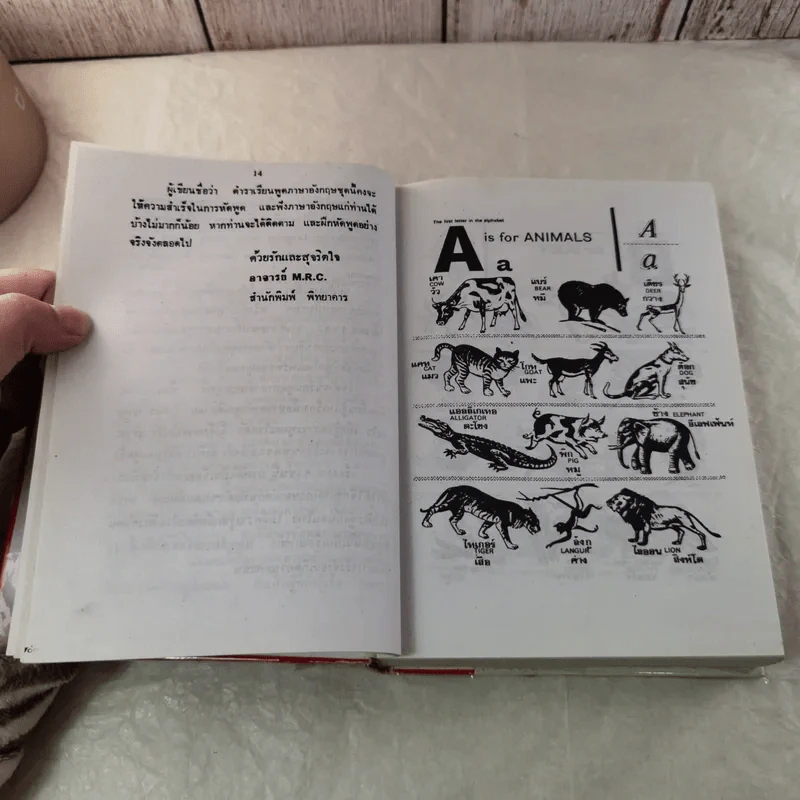 14
ผู้เขียนเชื่อว่า ตำราเรียนพูดภาษาอังกฤษชุดนี้คงจะ
ให้ความสำเร็จในการหัดพูด และฟังภาษาอังกฤษแก่ท่านได้
บ้างไม่มากก็น้อย หากท่านจะได้ติดตาม และฝึกหัดพูดอย่าง
จริงจังตลอดไป
ด้วยรักและสุจริตใจ
อาจารย์ M.R.C.
สำนักพิมพ์ พิทยาคาร
The first letter in the alphabet
A a is for ANIMALS
A
a
เคา
COW
วัว
แบร์
BEAR
หมี
เดียร
DEER
กวาง
แคท
CAT
แมว
โกท
GOAT
แพะ
ด๊อก
DOG
สุนัข
แอลลิเกเทอ
ALLIGATOR
ตะโขง
พิก
PIG
หมู
ช้าง ELEPHANT
อีเลฟเฟ่นท์
ไทเกอร์
TIGER
เสือ
ลังกู
LANGUR
ค่าง
ไลออน LION
สิงห์โต